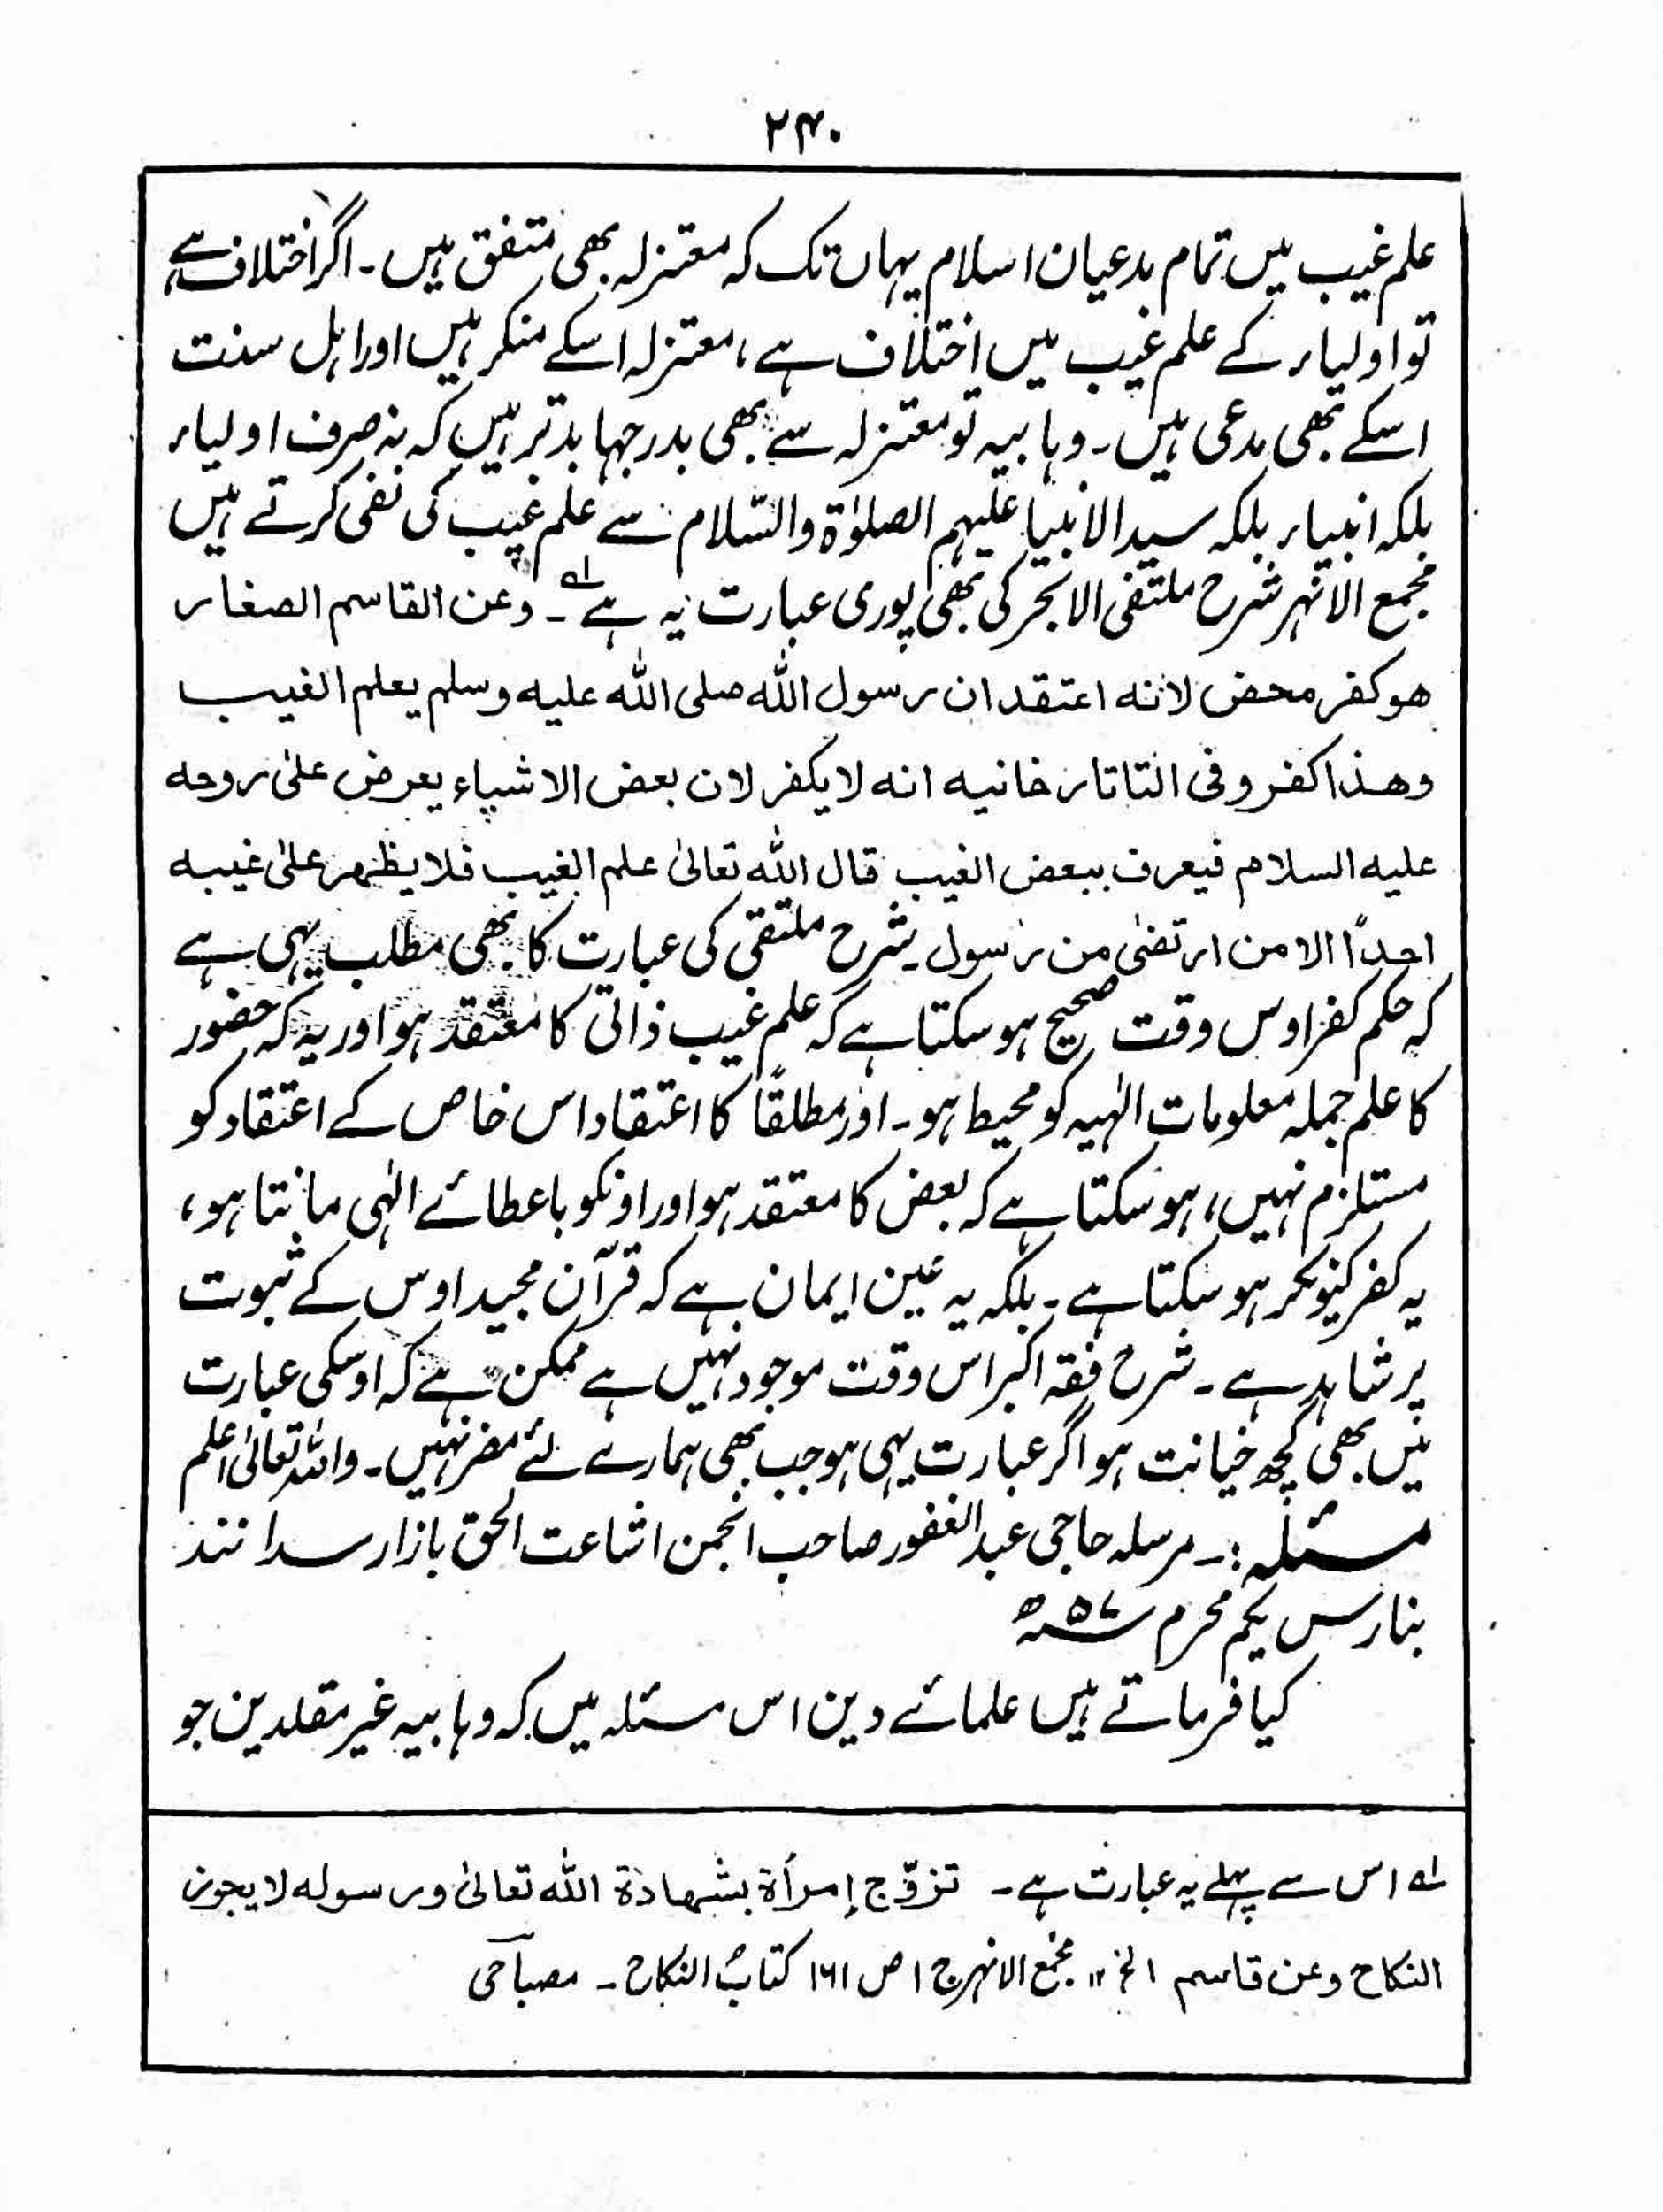 ۲۴۰
علم غیب میں تمام مدعیان اسلام یہاں تک کہ معتزلہ بھی متفق ہیں۔ اگر اختلاف ہے
تو اولیاء کے علم غیب میں اختلاف ہے، معتزلہ اسکے منکر ہیں اور اہل سنت
اسکے بھی مدعی ہیں۔ وہابیہ تو معتزلہ سے بھی بدرجہا بدتر ہیں کہ نہ صرف اولیاء
بلکہ انبیاء بلکہ سید الانبیا علیہم الصلوٰۃ والسّلام سے علم غیب کی نفی کرتے ہیں
مجمع الانہر شرح ملتقی الابحر کی بھی پوری عبارت یہ ہے ؎۱۔ وعن القاسم الصغار
هو كفر محض لانه اعتقد ان رسول الله صلى الله عليه وسلم يعلم الغيب
وهذا كفر وفى التاتارخانيه انه لا يكفر لان بعض الاشياء يعرض علىٰ روحه
عليه السلام فيعرف ببعض الغيب قال الله تعالىٰ علم الغيب فلا يظهر علىٰ غيبه
احدًا الا من ارتضىٰ من رسول۔ شرح ملتقی کی عبارت کا بھی مطلب یہی ہے
کہ حکم کفر اوس وقت صحیح ہو سکتا ہے کہ علم غیب ذاتی کا معتقد ہو اور یہ کہ حضور
کا علم جملہ معلومات الٰہیہ کو محیط ہو۔ اور مطلقاً کا اعتقاد اس خاص کے اعتقاد کو
مستلزم نہیں، ہو سکتا ہے کہ بعض کا معتقد ہو اور اونکو باعطائے الٰہی مانتا ہو،
یہ کفر کیونکر ہو سکتا ہے۔ بلکہ یہ عین ایمان ہے کہ قرآن مجید اوس کے ثبوت
پر شاہد ہے۔ شرح فقہ اکبر اس وقت موجود نہیں ہے ممکن ہے کہ اوسکی عبارت
میں بھی کچھ خیانت ہو اگر عبارت یہی ہو جب بھی ہمارے لئے مضر نہیں۔ واللہ تعالیٰ اعلم
مسئلہ:۔ مرسلہ حاجی عبد الغفور صاحب انجمن اشاعت الحق بازار سدانند
بنارس یکم محرم ۵۷ھ
کیا فرماتے ہیں علمائے دین اس مسئلہ میں کہ وہابیہ غیر مقلدین جو
؎۱ اس سے پہلے یہ عبارت ہے۔ تزوّج إمرأة بشهادة الله تعالىٰ ورسوله لا يجوز
النكاح وعن قاسم الخ ۱۲ مجمع الانہر ج ۱ ص ۱۶۱ کتابُ النکاح۔ مصباحی